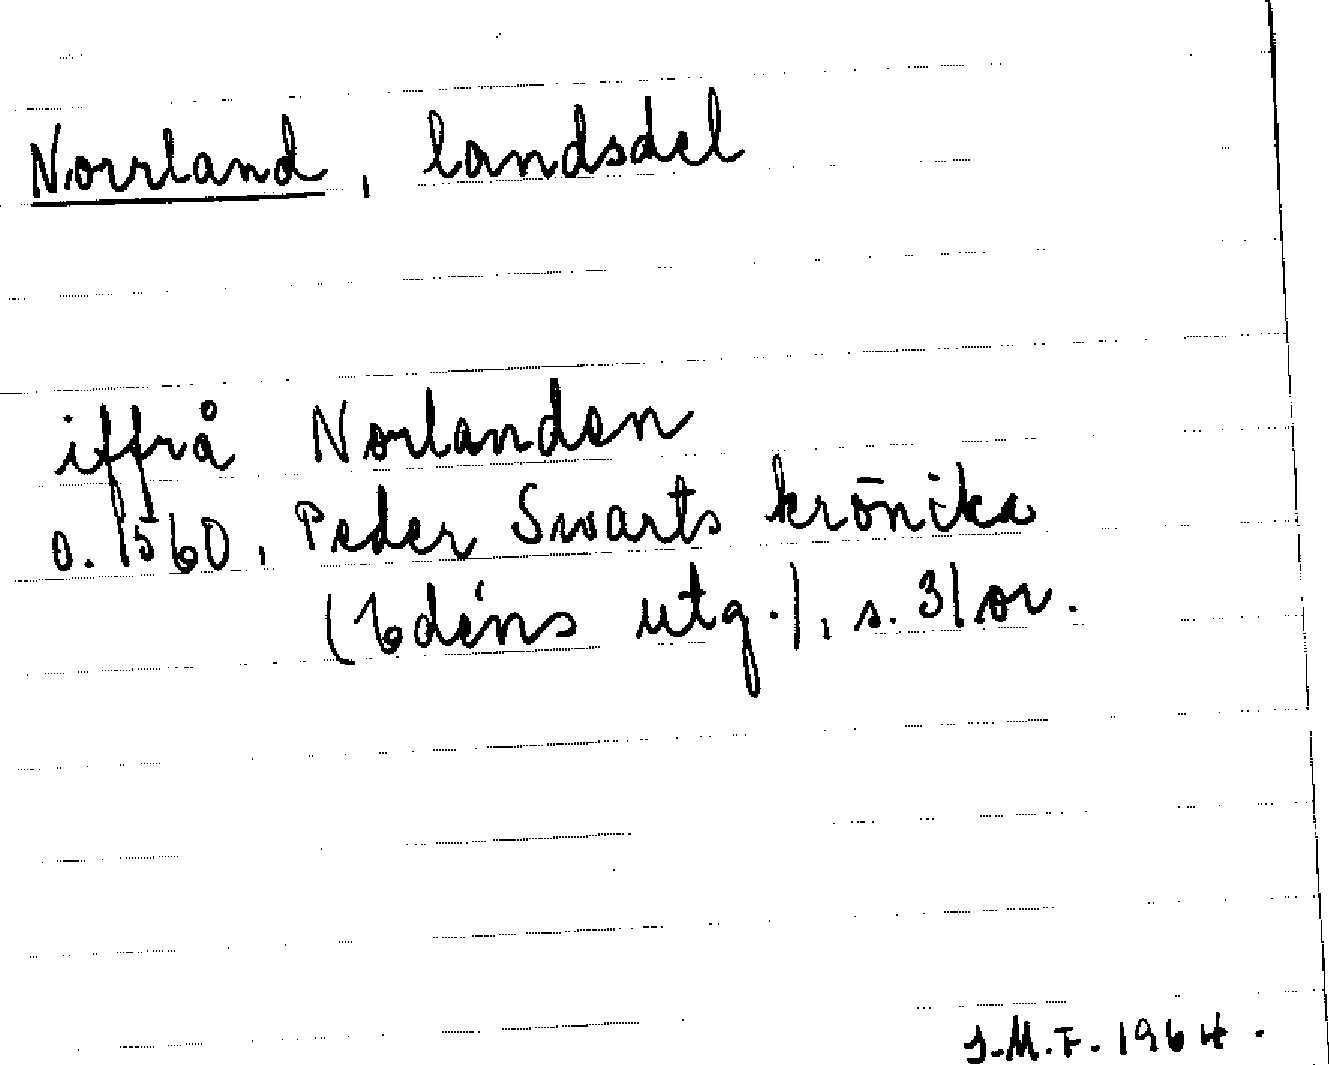 Norrland, landsdel
iffrå Norlanden
o. 1560, Peder Swarts krönika
(Edéns utg.), s. 31 ov.
J.M.F. 1964.